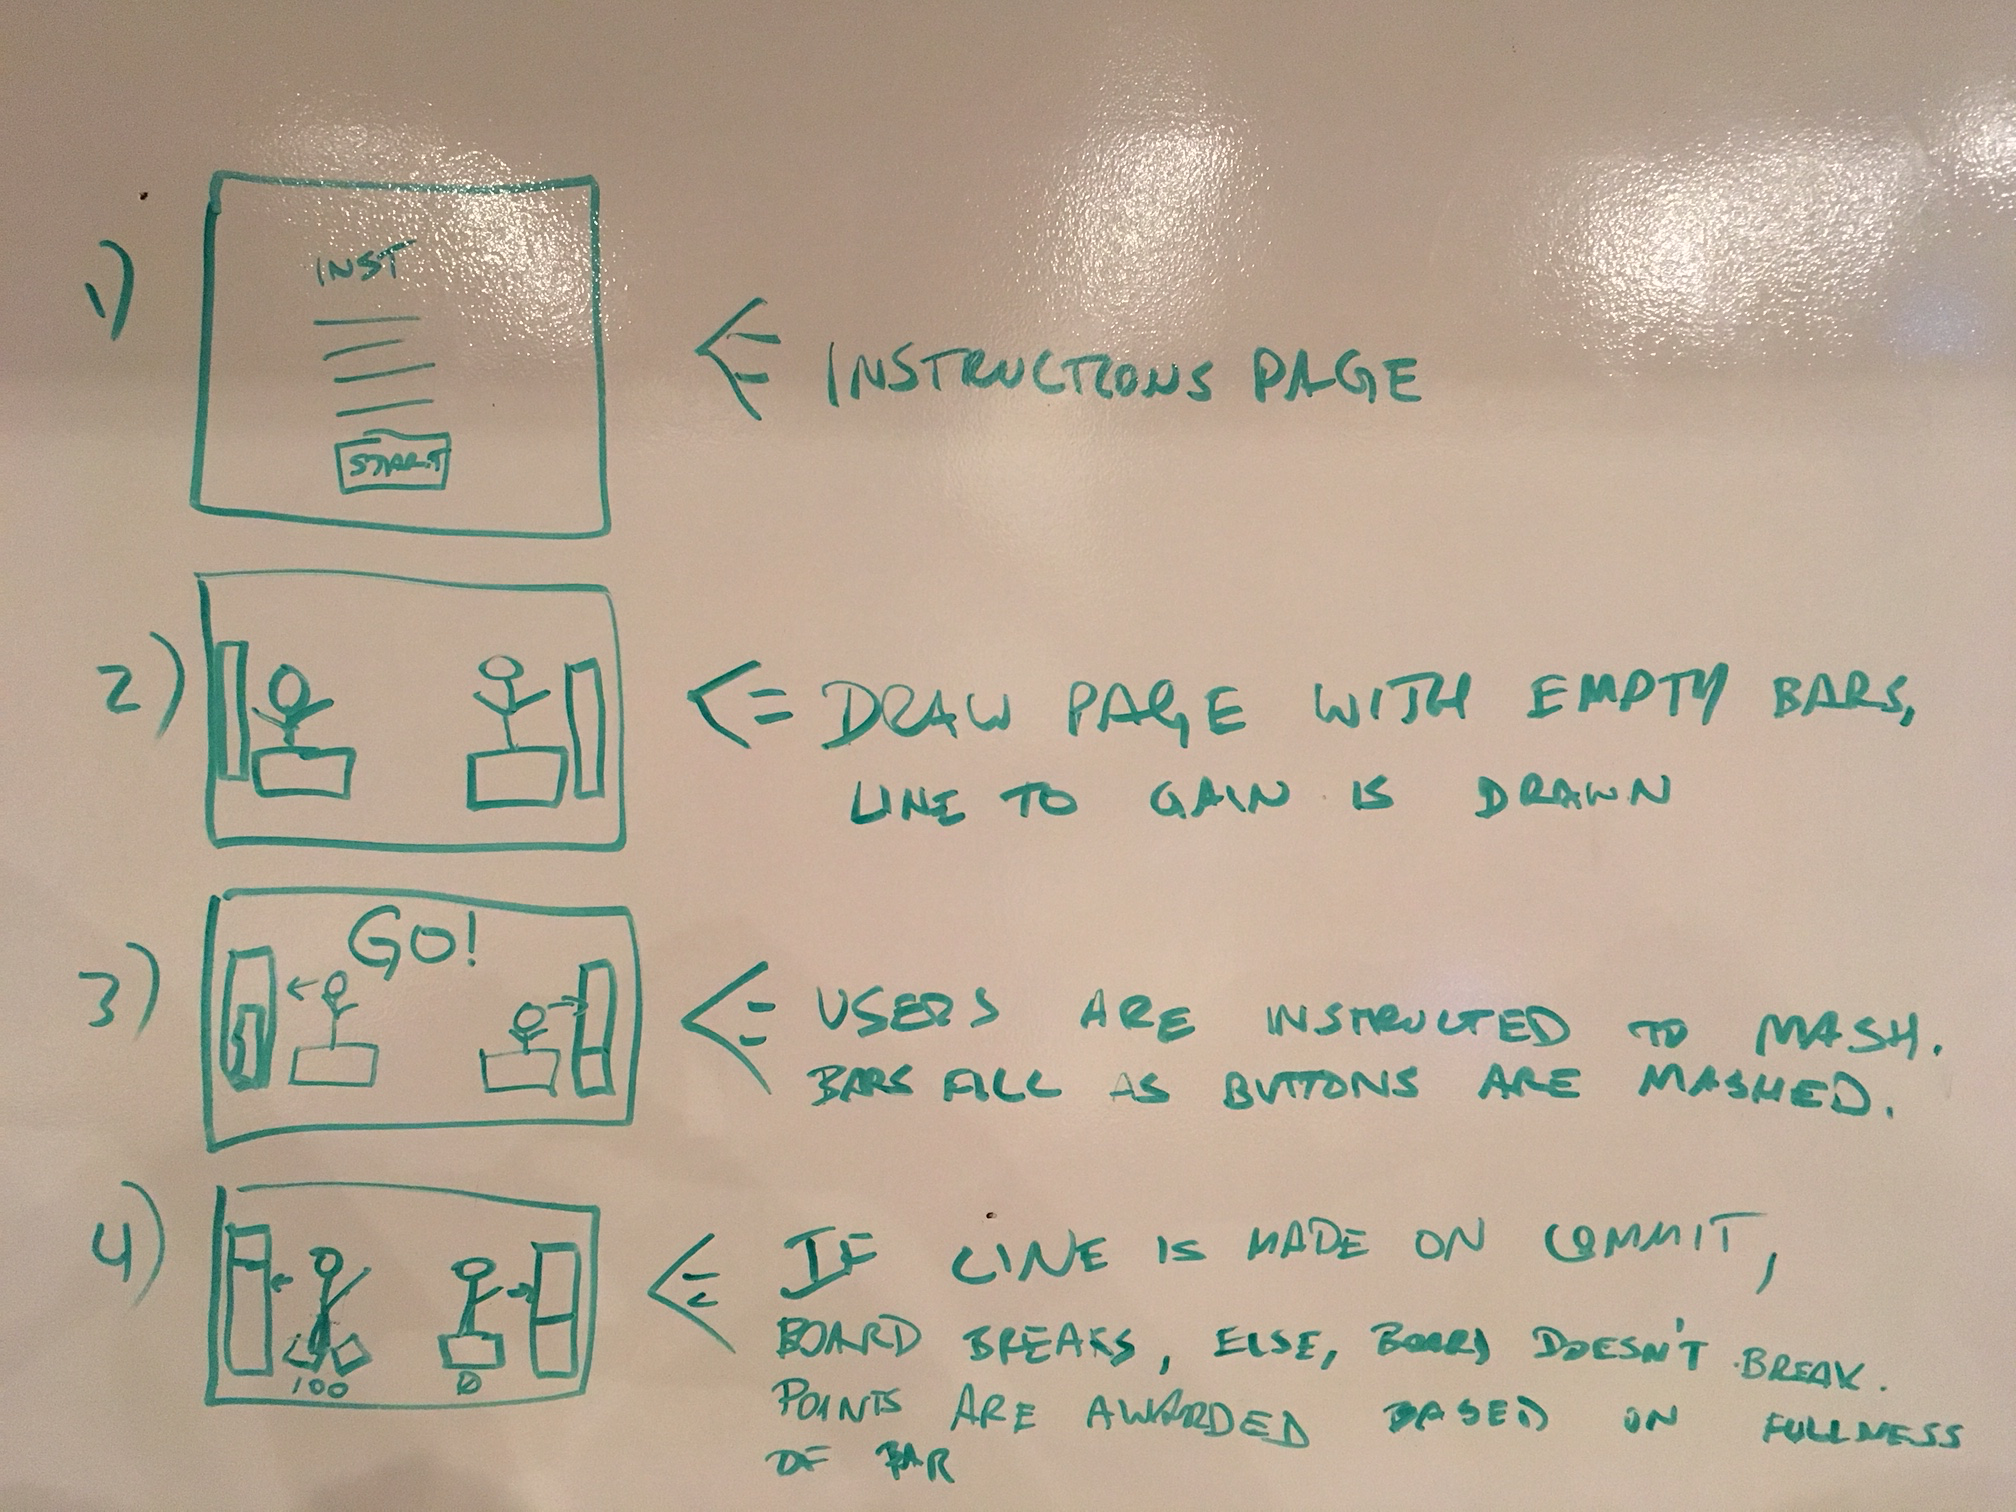 1)
INST
START
<= INSTRUCTIONS PAGE
2)
<= DRAW PAGE WITH EMPTY BARS,
LINE TO GAIN IS DRAWN
3)
GO!
<= USERS ARE INSTRUCTED TO MASH.
BARS FILL AS BUTTONS ARE MASHED.
4)
100
0
<= IF LINE IS MADE ON COMMIT,
BOARD BREAKS, ELSE, BOARD DOESN'T BREAK.
POINTS ARE AWARDED BASED ON FULLNESS
OF BAR